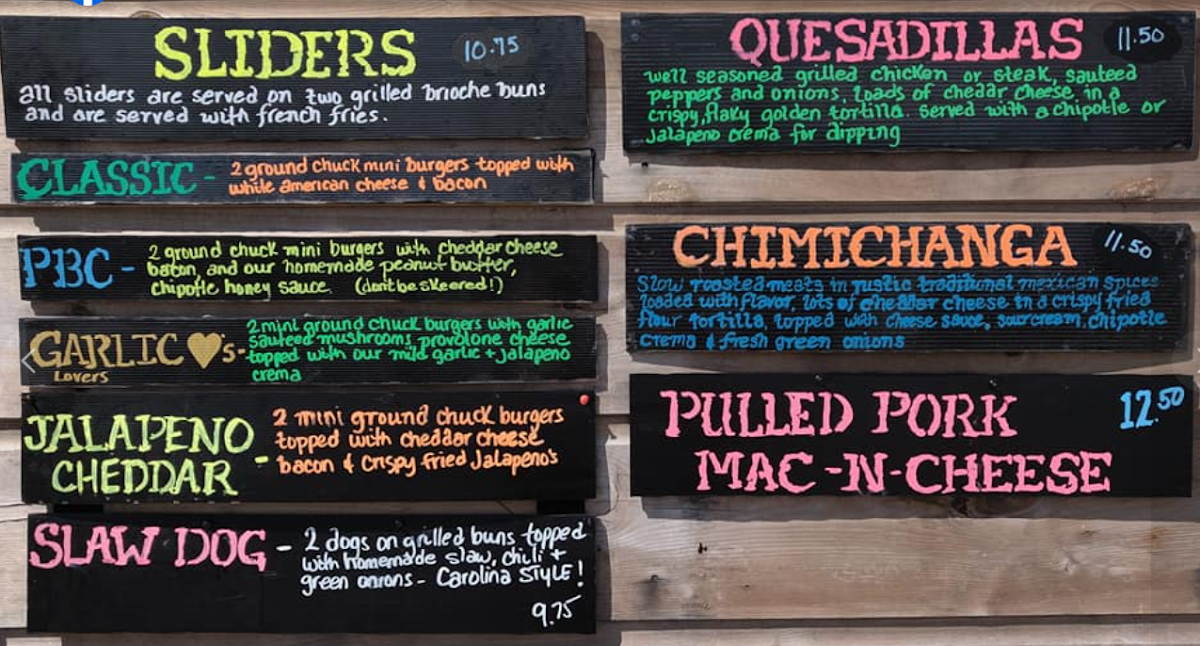 SLIDERS 10.75
all sliders are served on two grilled brioche buns
and are served with french fries.
CLASSIC - 2 ground chuck mini burgers topped with
white american cheese & bacon
PBC - 2 ground chuck mini burgers with cheddar cheese
bacon, and our homemade peanut butter,
chipotle honey sauce. (dont be skeered!)
GARLIC ♥'s -
Lovers
2 mini ground chuck burgers with garlic
sauteed mushrooms, provolone cheese
topped with our mild garlic + jalapeno
crema
JALAPENO
CHEDDAR -
2 mini ground chuck burgers
topped with cheddar cheese
bacon & crispy fried Jalapeno's
SLAW DOG - 2 dogs on grilled buns topped
with homemade slaw, chili +
green onions - Carolina STYLE!
9.75
QUESADILLAS 11.50
well seasoned grilled chicken or steak, sauteed
peppers and onions, loads of chedar cheese in a
crispy, flaky golden tortilla. served with a chipotle or
Jalapeno crema for dipping
CHIMICHANGA 11.50
Slow roasted meats in rustic traditional mexican spices
loaded with flavor, lots of cheddar cheese in a crispy fried
flour tortilla, topped with cheese sauce, sour cream, chipotle
crema & fresh green onions
PULLED PORK 12.50
MAC-N-CHEESE